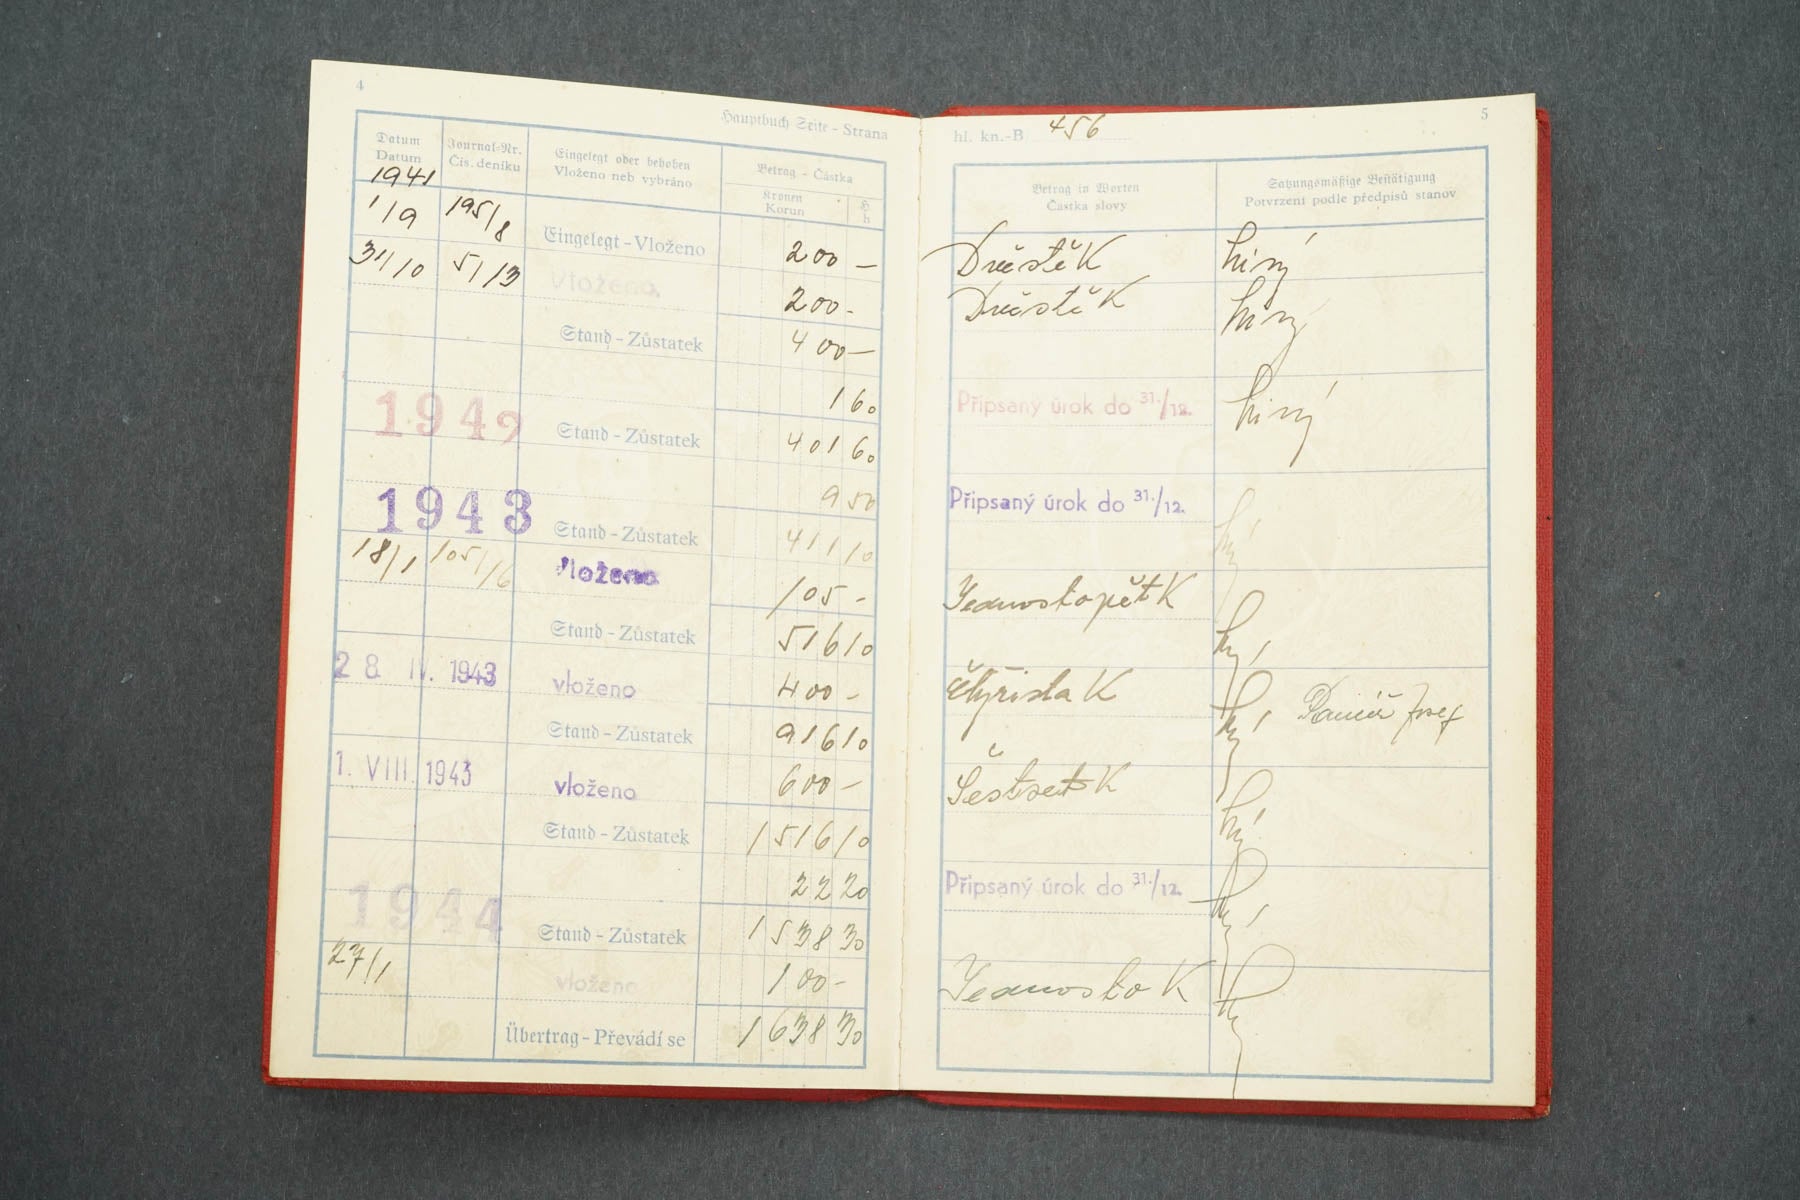 4
Hauptbuch Seite - Strana
Datum
Datum
1941
Journal-Nr.
Čís. deníku
Eingelegt oder behoben
Vloženo neb vybráno
Betrag - Částka
Kronen
Korun
H
h
1/9 195/8 Eingelegt - Vloženo 200 –
31/10 51/13 Vloženo 200 -
Stand - Zůstatek 400 –
1 60
1942 Stand - Zůstatek 401 60
9 50
1943 Stand - Zůstatek 411 10
18/1 105/16 Vloženo 105 -
Stand - Zůstatek 516 10
28 IV. 1943 vloženo 400 -
Stand - Zůstatek 916 10
1. VIII. 1943 vloženo 600 –
Stand - Zůstatek 1516 10
22 20
1944 Stand - Zůstatek 1538 30
27/1 vloženo 100 -
Übertrag - Převádí se 1638 30
5
hl. kn.-B 456
Betrag in Worten
Částka slovy
Satzungsmäßige Bestätigung
Potvrzení podle předpisů stanov
Dvěstě K
Dvěstě K
Připsaný úrok do 31./12.
Připsaný úrok do 31./12.
Jednostopět K
Čtyřista K
Josef
Šestset K
Připsaný úrok do 31./12.
Jednosto K